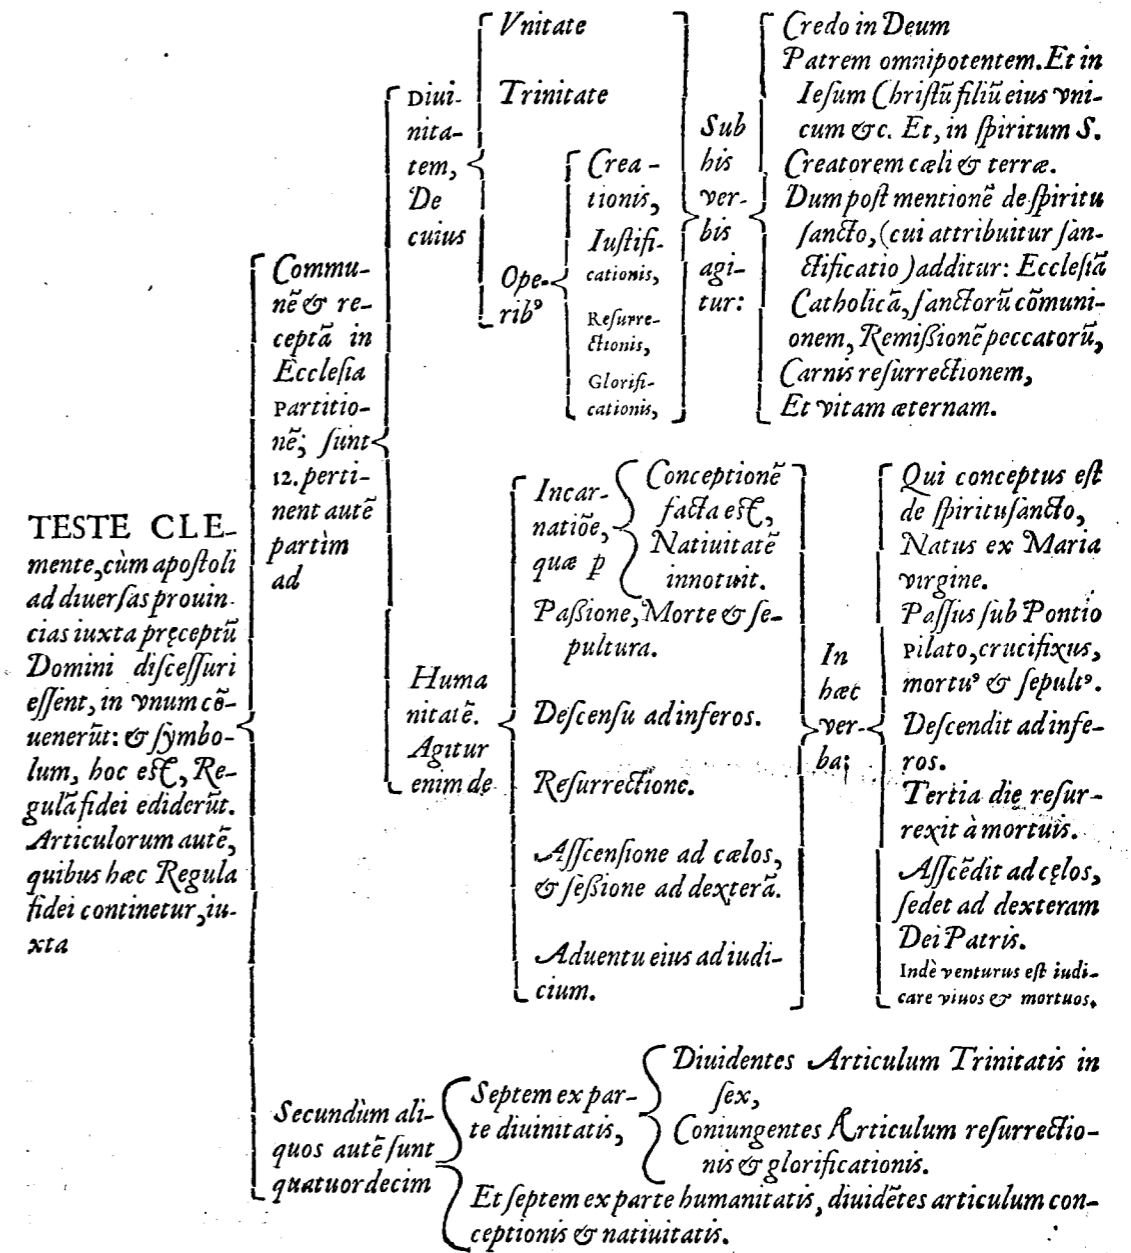 TESTE CLE-
mente, cùm apoſtoli
ad diuerſas prouin-
cias iuxta pręceptū
Domini diſceſſuri
eſſent, in vnum cō-
uenerūt: & ſymbo-
lum, hoc eſt, Re-
gulā fidei ediderūt.
Articulorum autē,
quibus hæc Regula
fidei continetur, iu-
xta
Commu-
nē & re-
ceptā in
Eccleſia
Partitio-
nē; ſunt
12. perti-
nent autē
partìm
ad
Diui-
nita-
tem,
De
cuius
Vnitate
Trinitate
Ope-
ribꝰ
Crea-
tionis,
Iuſtifi-
cationis,
Reſurre-
ctionis,
Glorifi-
cationis,
Sub
his
ver-
bis
agi-
tur:
Credo in Deum
Patrem omnipotentem. Et in
Ieſum Chriſtū filiū eius vni-
cum &c. Et, in ſpiritum S.
Creatorem cæli & terræ.
Dum poſt mentionē de ſpiritu
ſancto, (cui attribuitur ſan-
ctificatio) additur: Eccleſiā
Catholicā, ſanctorū cōmuni-
onem, Remißionē peccatorū,
Carnis reſurrectionem,
Et vitam æternam.
Huma
nitatē.
Agitur
enim de
Incar-
natiōe,
quæ ꝑ
Conceptionē
facta eſt,
Natiuitatē
innotuit.
Paßione, Morte & ſe-
pultura.
Deſcenſu ad inferos.
Reſurrectione.
Aſſcenſione ad cælos,
& ſeßione ad dexterā.
Aduentu eius ad iudi-
cium.
In
hæc
ver-
ba:
Qui conceptus eſt
de ſpiritu ſancto,
Natus ex Maria
virgine.
Paſſus ſub Pontio
Pilato, crucifixus,
mortuꝰ & ſepultꝰ.
Deſcendit ad infe-
ros.
Tertia die reſur-
rexit à mortuis.
Aſſcēdit ad cęlos,
ſedet ad dexteram
Dei Patris.
Indè venturus eſt iudi-
care viuos & mortuos.
Secundùm ali-
quos autē ſunt
quatuordecim
Septem ex par-
te diuinitatis,
Diuidentes Articulum Trinitatis in
ſex,
Coniungentes Articulum reſurrectio-
nis & glorificationis.
Et ſeptem ex parte humanitatis, diuidētes articulum con-
ceptionis & natiuitatis.